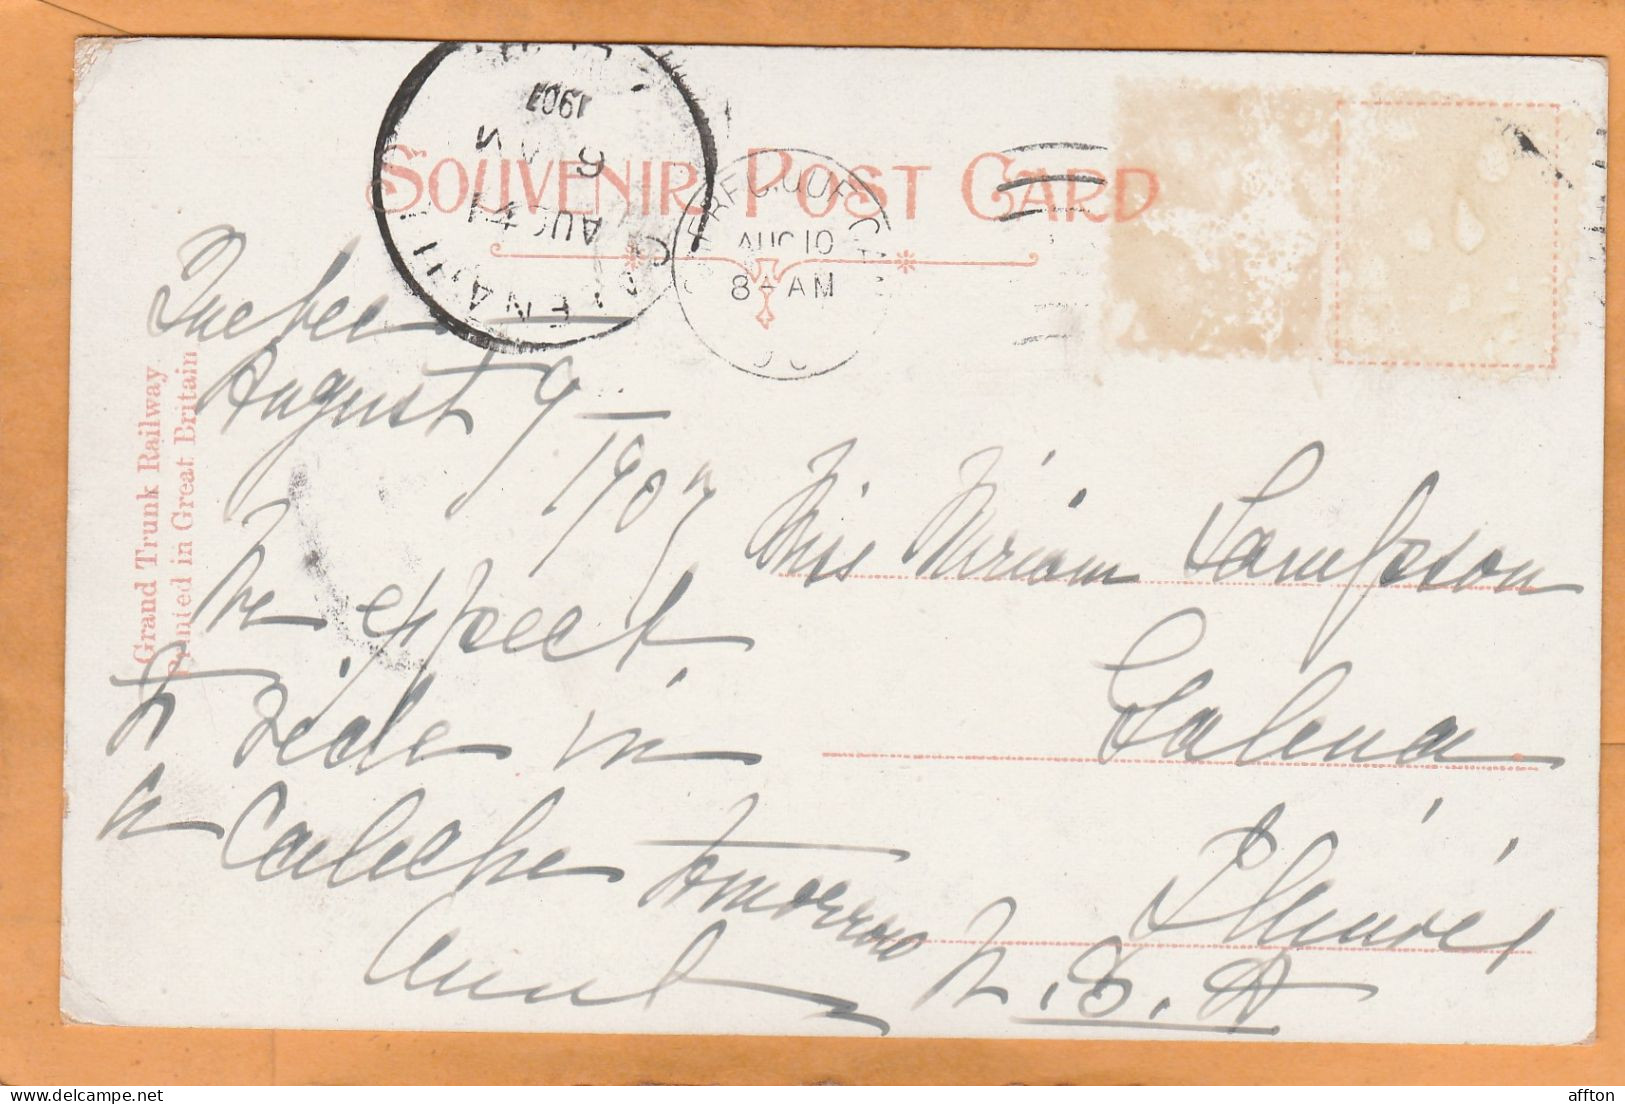 SOUVENIR POST CARD
1907
6 AM
AUG 14
AUG 10
8 - AM
Grand Trunk Railway
Printed in Great Britain
Quebec
August 9
1907
We expect
to ride in
a Caleche tomorrow
Aunt
Miss Miriam Sampson
Galena
Illinois
U.S.A
affton